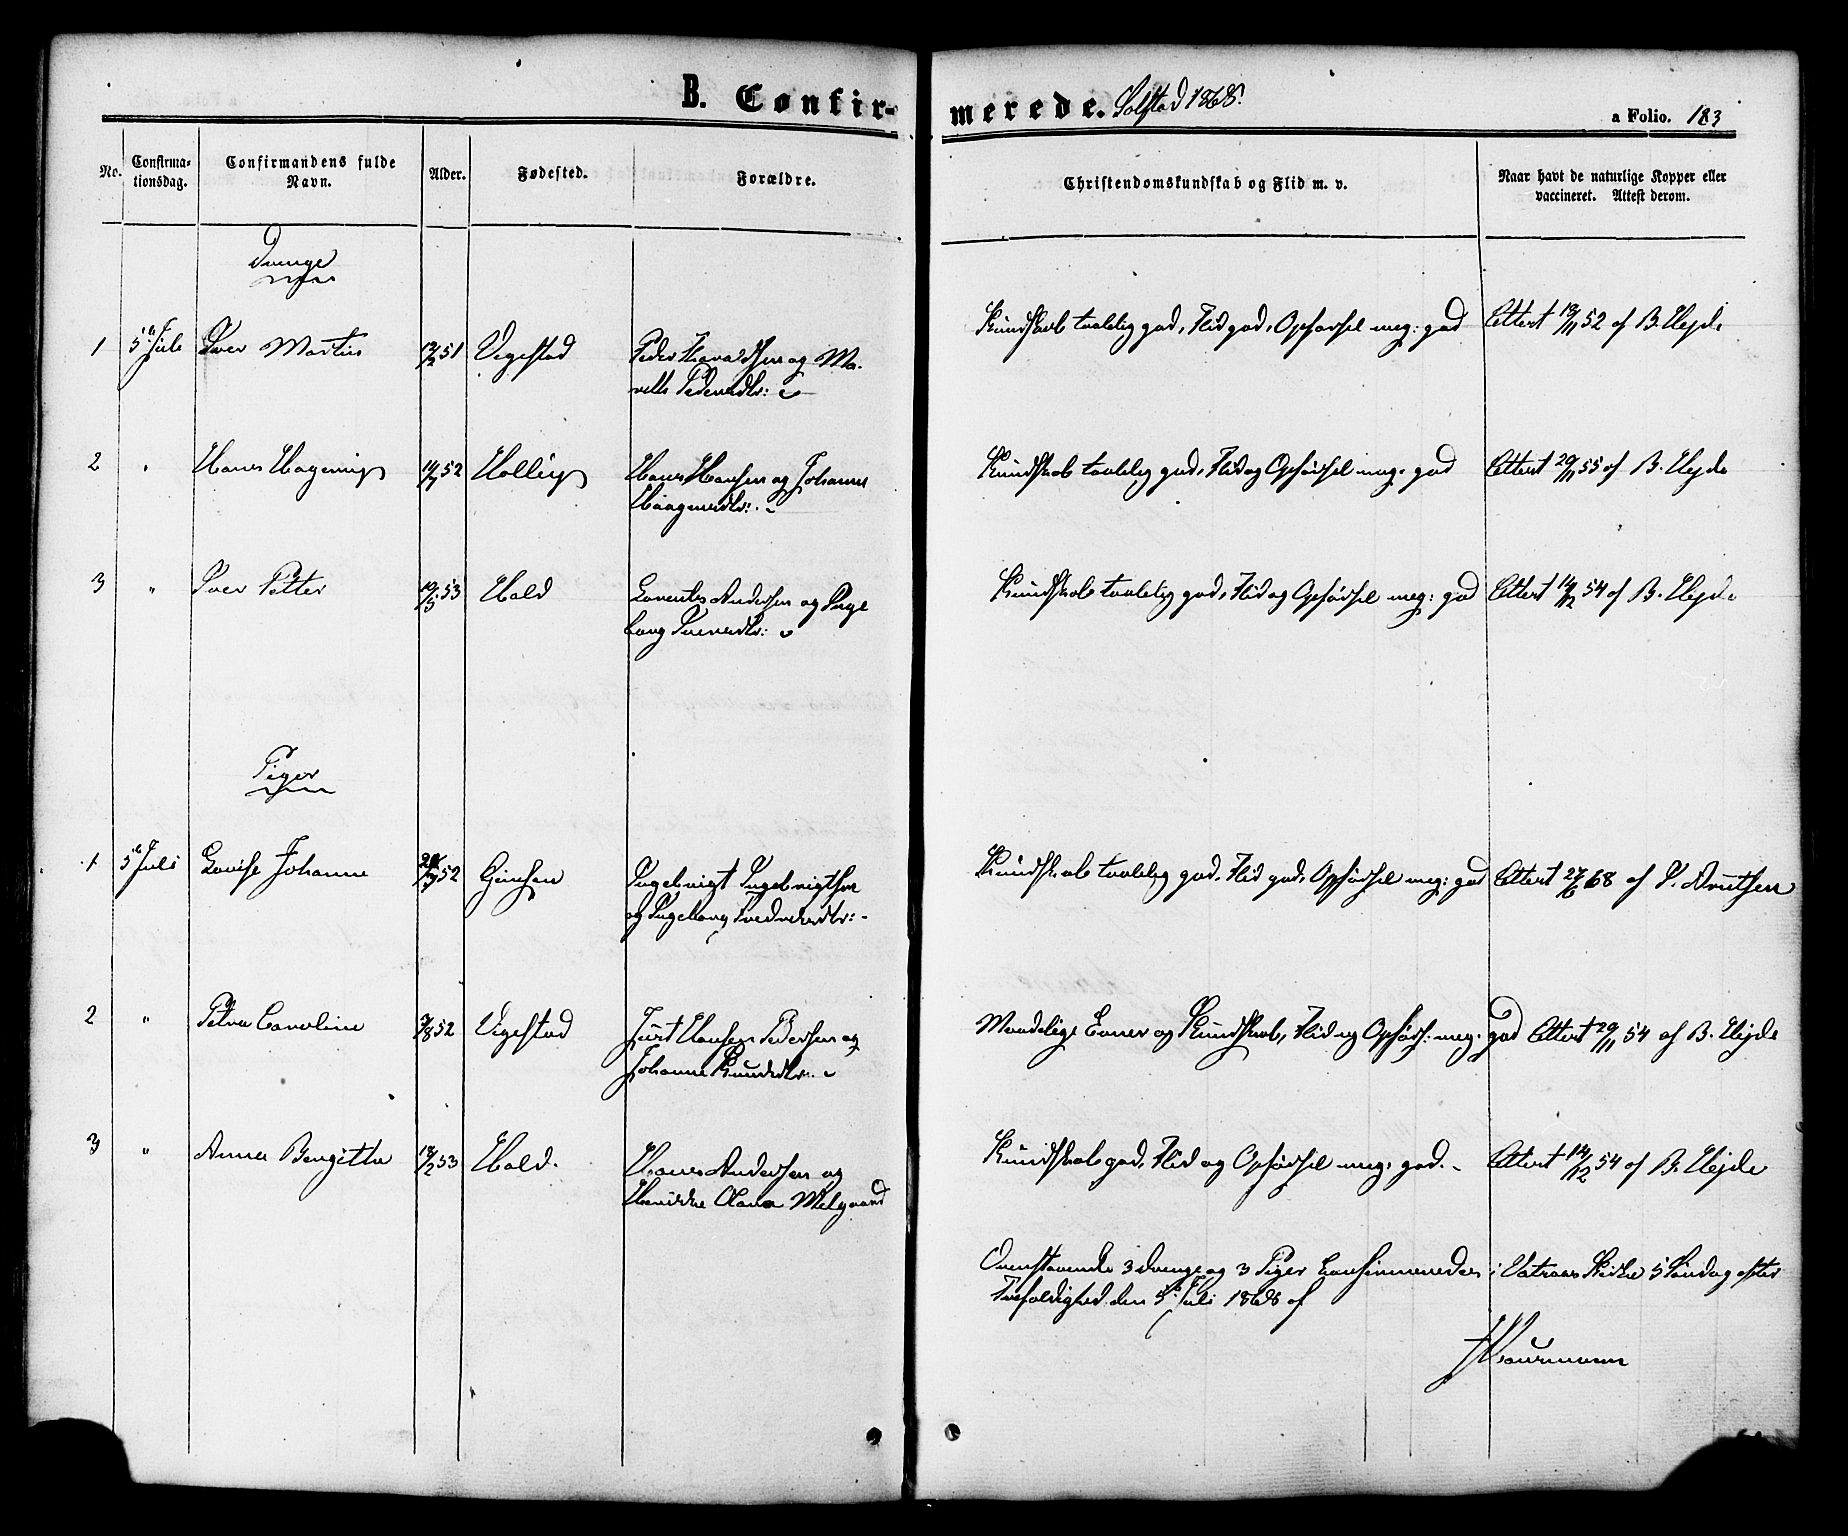 B. Confirmerede. Solstad 1868.
a Folio. 183
No. Confirmationsdag. Confirmandens fulde Navn. Alder. Fødested. Forældre. Christendomskundskab og Flid m. v. Naar havt de naturlige Kopper eller vaccineret. Attest derom.
Drenge
1 5te Juli Iver Martin 13/2 51 Vigestad Peder Haraldsen og Ma-
rith Pedersdtr: Kundskab taalelig god, Flid god, Opførsel meg: god Attest 19/11 52 af B. Hejde
2 " Hans Hagerup 14/7 52 Holling Hans Hansen og Johanna
Haagensdtr: Kundskab taalelig god, Flid og Opførsel meg: god Attest 20/11 55 af B. Hejde
3 " Iver Petter 19/3 53 Hald Lorents Andersen og Inge
borg Iversdtr: Kundskab taalelig god, Flid og Opførsel meg: god Attest 14/12 54 af B. Hejde
Piger
1 5te Juli Lovise Johanna 52 Ingebrigt Ingebrigtsen
og Ingeborg Kundskab taalelig god, Flid god, Opførsel meg: god Attest 27/6 68 af Knutsen
2 " Petra Caroline 7/8 52 Vigestad Kurt Hansen Pedersen og
Johanna Knudsdtr: Maadelige Evner og Kundskab, Flid og Opførs: meg: god Attest 29/11 54 af B. Hejde
3 " Anna Bergitha 18/2 53 Hald. Hans Andersen og
Henrikke Olava Melgaard Kundskab god, Flid og Opførsel meg: god. Attest 14/12 54 af B. Hejde
Ovenstaaende 3 drenge og 3 Piger confirmeredes i Vatnaas Kirke 5 Søndag efter
Trefoldighed den 5te Juli 1868 af